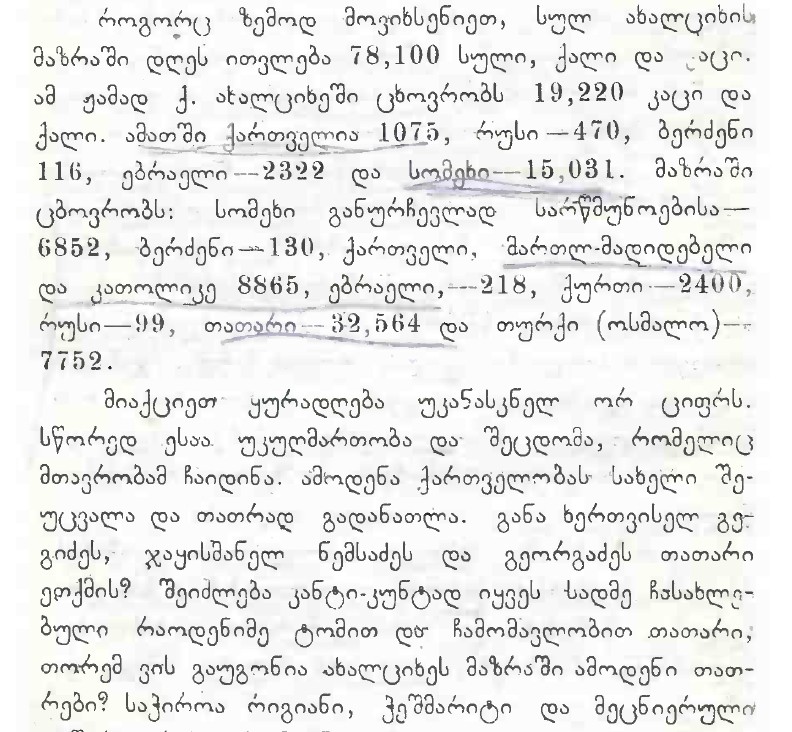 როგორც ზემოდ მოვიხსენიეთ, სულ ახალციხის
მაზრაში დღეს ითვლება 78,100 სული, ქალი და კაცი.
ამ ჟამად ქ. ახალციხეში ცხოვრობს 19,220 კაცი და
ქალი. ამათში ქართველია 1075, რუსი—470, ბერძენი
116, ებრაელი—2322 და სომეხი—15,031. მაზრაში
ცბოვრობს: სომეხი განურჩევლად სარწმუნოებისა—
6852, ბერძენი—130, ქართველი, მართლ-მადიდებელი
და კათოლიკე 8865, ებრაელი,—218, ქურთი—2400,
რუსი—99, თათარი—32,564 და თურქი (ოსმალო)—
7752.
მიაქციეთ ყურადღება უკანასკნელ ორ ციფრს.
სწორედ ესაა უკუღმართობა და შეცდომა, რომელიც
მთავრობამ ჩაიდინა. ამოდენა ქართველობას სახელი შე-
უცვალა და თათრად გადანათლა. განა ხერთვისელ გე-
გიძეს, ჯაყისმანელ ნემსაძეს და გეორგაძეს თათარი
ეთქმის? შეიძლება კანტი-კუნტად იყვეს სადმე ჩასახლე-
ბული რაოდენიმე ტომით და ჩამომავლობით თათარი,
თორემ ვის გაუგონია ახალციხეს მაზრაში ამოდენი თათ-
რები? საჭიროა რიგიანი, ჭეშმარიტი და მეცნიერული